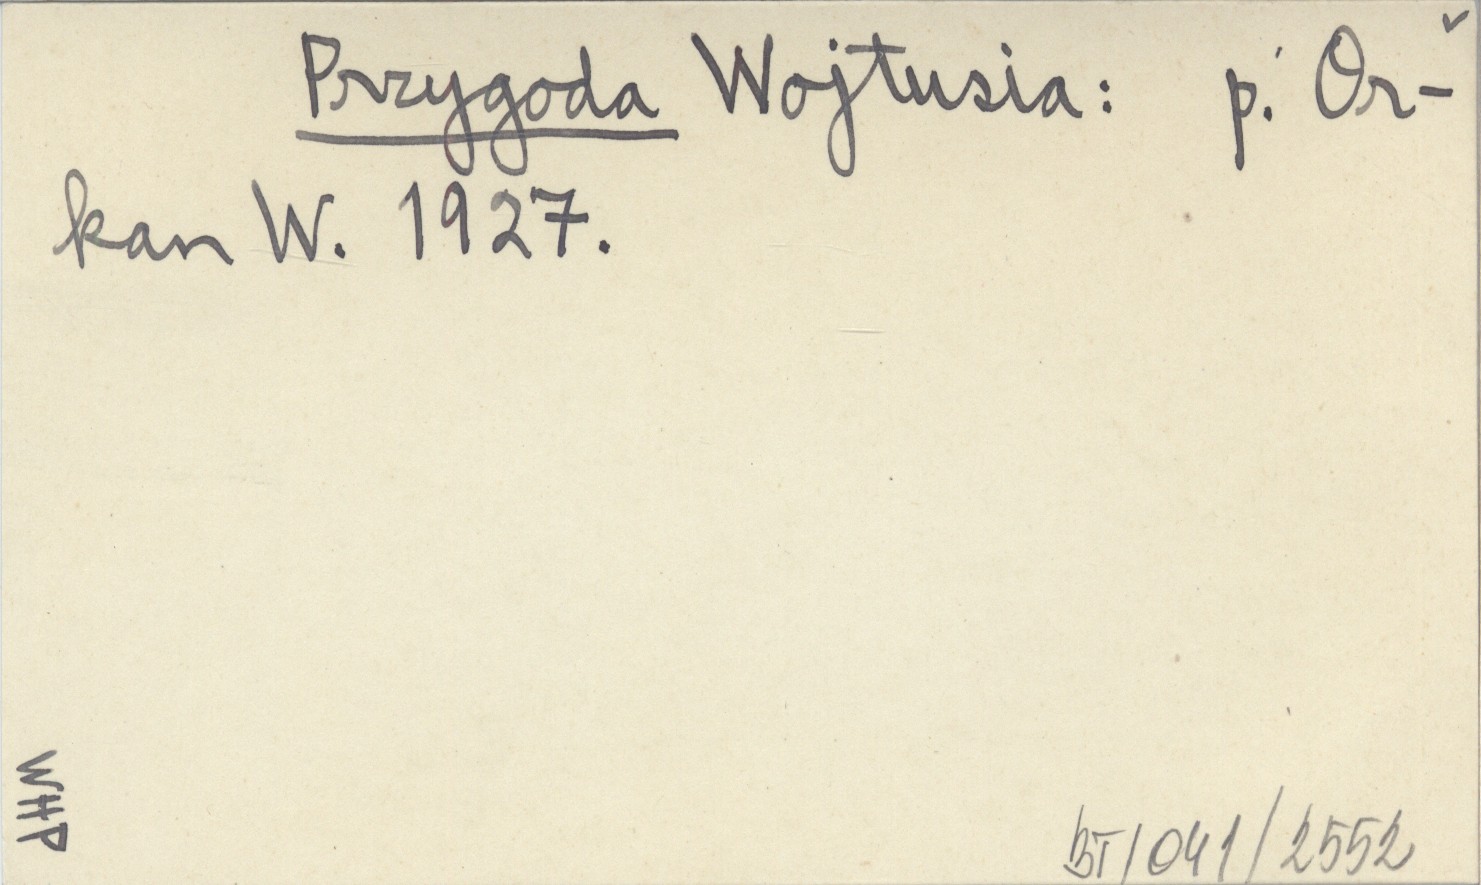 Przygoda Wojtusia: p. Or-
kan W. 1927.
WHP
BT/041/2552